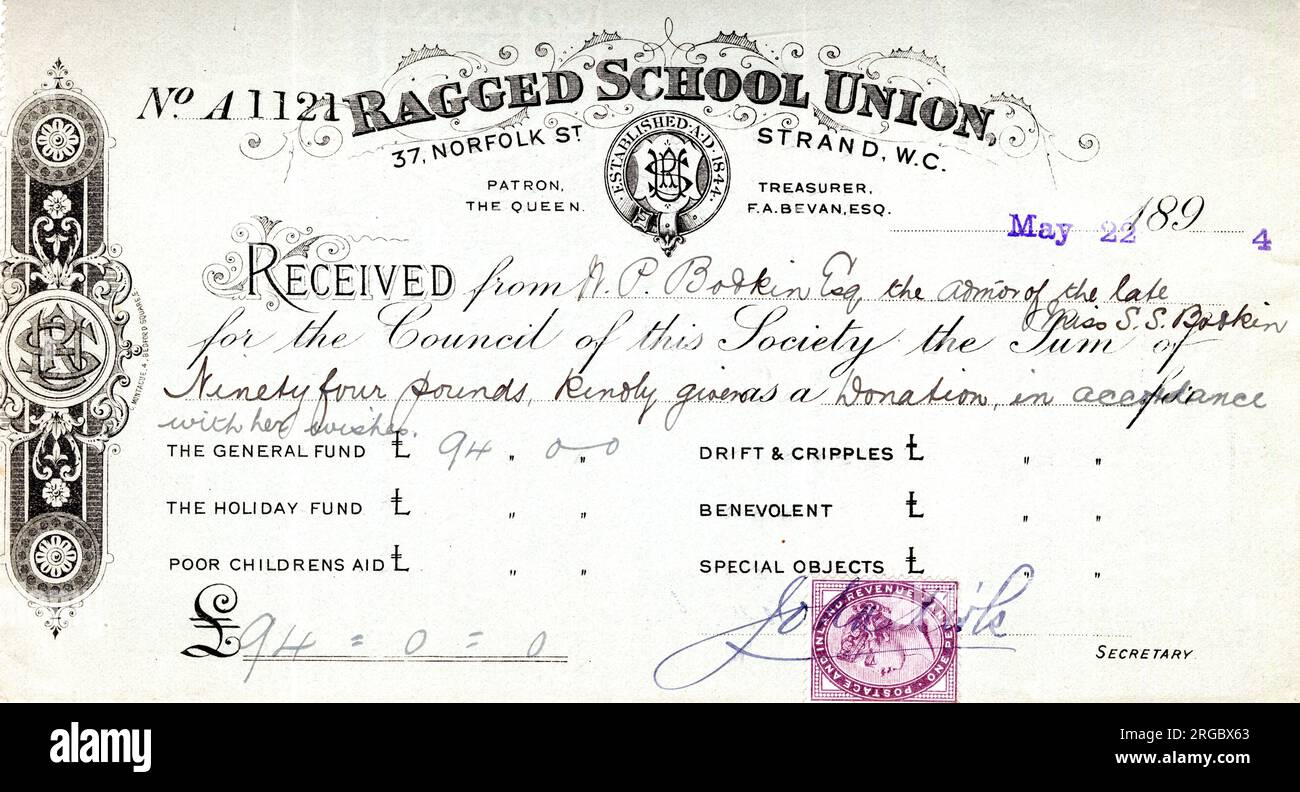 No A1121 RAGGED SCHOOL UNION,
37, NORFOLK ST STRAND, W.C.
ESTABLISHED A.D. 1844.
PATRON, TREASURER,
THE QUEEN. F.A. BEVAN, ESQ.
May 22 189 4
RECEIVED from P. Bodkin Esq, the admor of the late
Miss S. S. Bodkin
for the Council of this Society the Sum of
Ninety four pounds, kindly given as a Donation, in accordance
with her wishes.
THE GENERAL FUND £ 94 " 0 " 0 DRIFT & CRIPPLES £ " "
THE HOLIDAY FUND £ " " BENEVOLENT £ " "
POOR CHILDRENS AID £ " " SPECIAL OBJECTS £ " "
£ 94 = 0 = 0
John Kirk
SECRETARY
POSTAGE AND INLAND REVENUE ONE PENNY
MONTAGUE, 4, BEDFORD SQUARE
alamy
Image ID: 2RGBX63
www.alamy.com